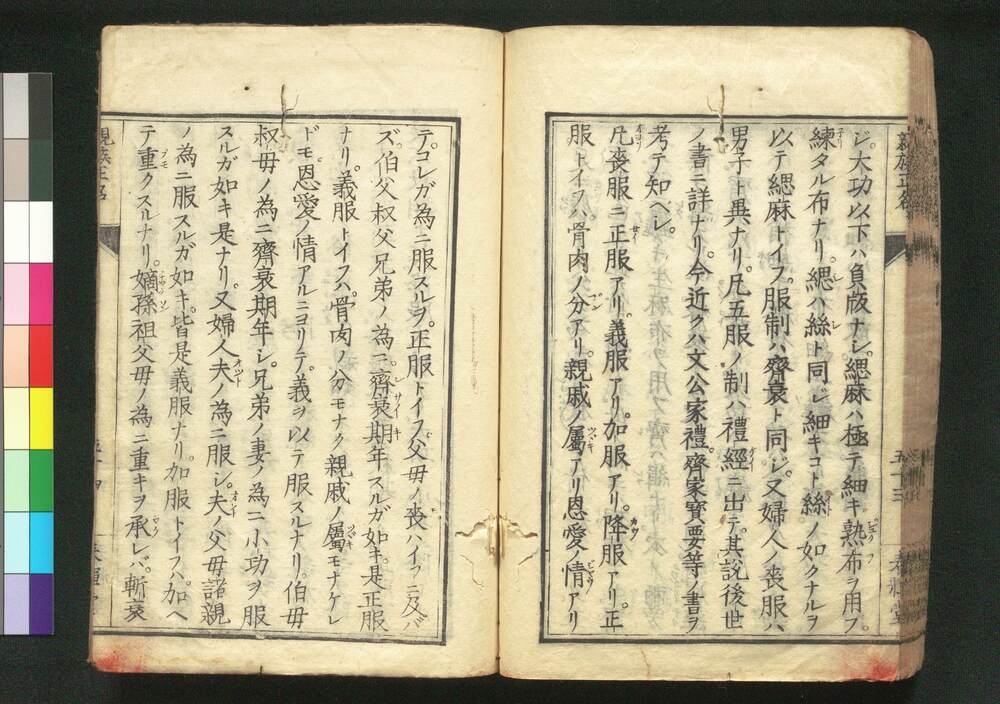 ジ。大功以下ハ負版ナシ。緦麻ハ極テ細キ熟布ヲ用フ。
練タル布ナリ。緦ハ絲ト同ジ。細キコト絲ノ如クナルヲ
以テ緦麻トイフ。服制ハ齊衰ト同ジ。又婦人ノ喪服ハ
男子ト異ナリ。凡五服ノ制ハ禮經ニ出テ。其説後世
ノ書ニ詳ナリ。今近クハ文公家禮。齊家寶要等ノ書ヲ
考テ知ベシ。
凡喪服ニ正服アリ。義服アリ。加服アリ。降服アリ。正
服トイフハ。骨肉ノ分アリ。親戚ノ屬アリ恩愛ノ情アリ
五十三
テ。コレガ為ニ服スルヲ。正服トイフ。父母ノ喪ハイフニ及バ
ズ。伯父叔父兄弟ノ為ニ。齊衰期年スルガ如キ。是正服
ナリ。義服トイフハ。骨肉ノ分モナク。親戚ノ屬モナケレ
ドモ。恩愛ノ情アルニヨリテ。義ヲ以テ服スルナリ。伯母
叔母ノ為ニ齊衰期年シ。兄弟ノ妻ノ為ニ小功ヲ服
スルガ如キ是ナリ。又婦人夫ノ為ニ服シ。夫ノ父母諸親
ノ為ニ服スルガ如キ。皆是義服ナリ。加服トイフハ。加ヘ
テ重クスルナリ。嫡孫祖父母ノ為ニ重キヲ承レバ。斬衰